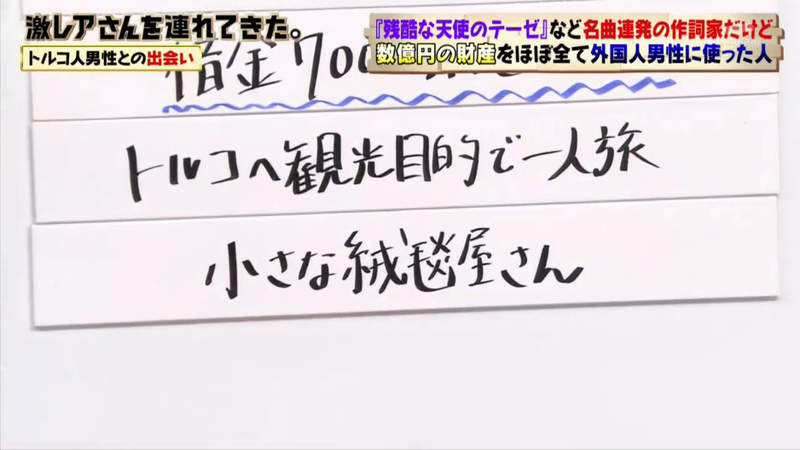 激レアさんを連れてきた。
トルコ人男性との出会い
『残酷な天使のテーゼ』など名曲連発の作詞家だけど
数億円の財産をほぼ全て外国人男性に使った人
トルコへ観光目的で一人旅
小さな絨毯屋さん